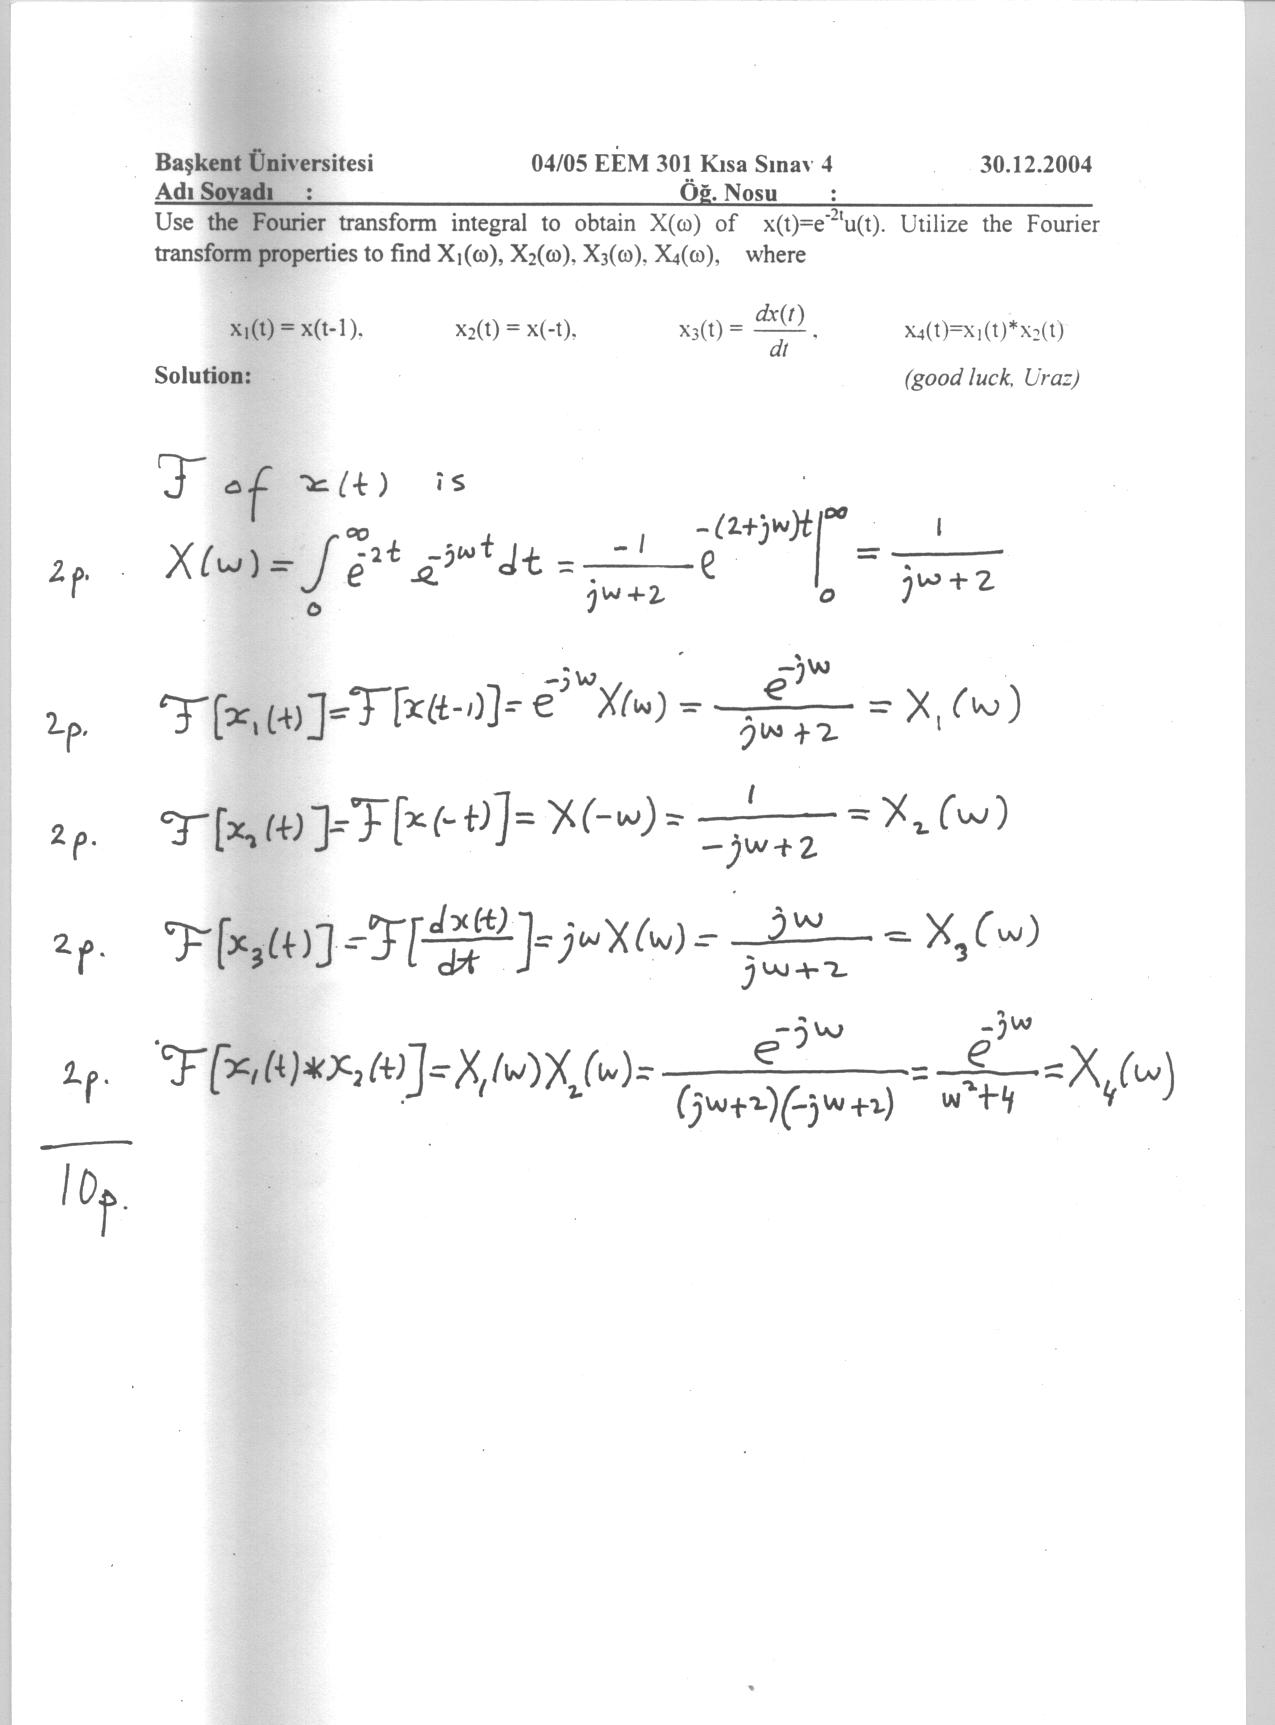 Başkent Üniversitesi 04/05 EEM 301 Kısa Sınav 4 30.12.2004
Adı Soyadı : Öğ. Nosu :
Use the Fourier transform integral to obtain X(ω) of x(t)=e⁻²ᵗu(t). Utilize the Fourier
transform properties to find X₁(ω), X₂(ω), X₃(ω), X₄(ω), where
x₁(t) = x(t-1), x₂(t) = x(-t), x₃(t) = dx(t)/dt , x₄(t)=x₁(t)*x₂(t)
Solution: (good luck, Uraz)
F of x(t) is
2p. X(w) = ∫₀^∞ e^-2t e^-jwt dt = -1/(jw+2) e^-(2+jw)t |₀^∞ = 1/(jw+2)
2p. F[x₁(t)]=F[x(t-1)]= e^-jw X(w) = e^-jw/(jw+2) = X₁(w)
2p. F[x₂(t)]=F[x(-t)]= X(-w) = 1/(-jw+2) = X₂(w)
2p. F[x₃(t)]=F[dx(t)/dt]= jw X(w) = jw/(jw+2) = X₃(w)
2p. F[x₁(t)*x₂(t)]=X₁(w)X₂(w)= e^-jw/((jw+2)(-jw+2)) = e^-jw/(w²+4) = X₄(w)
10p.